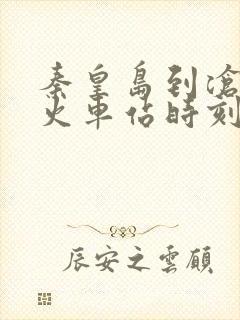 秦皇島到滄
火車佔時刻
辰安之雲顧